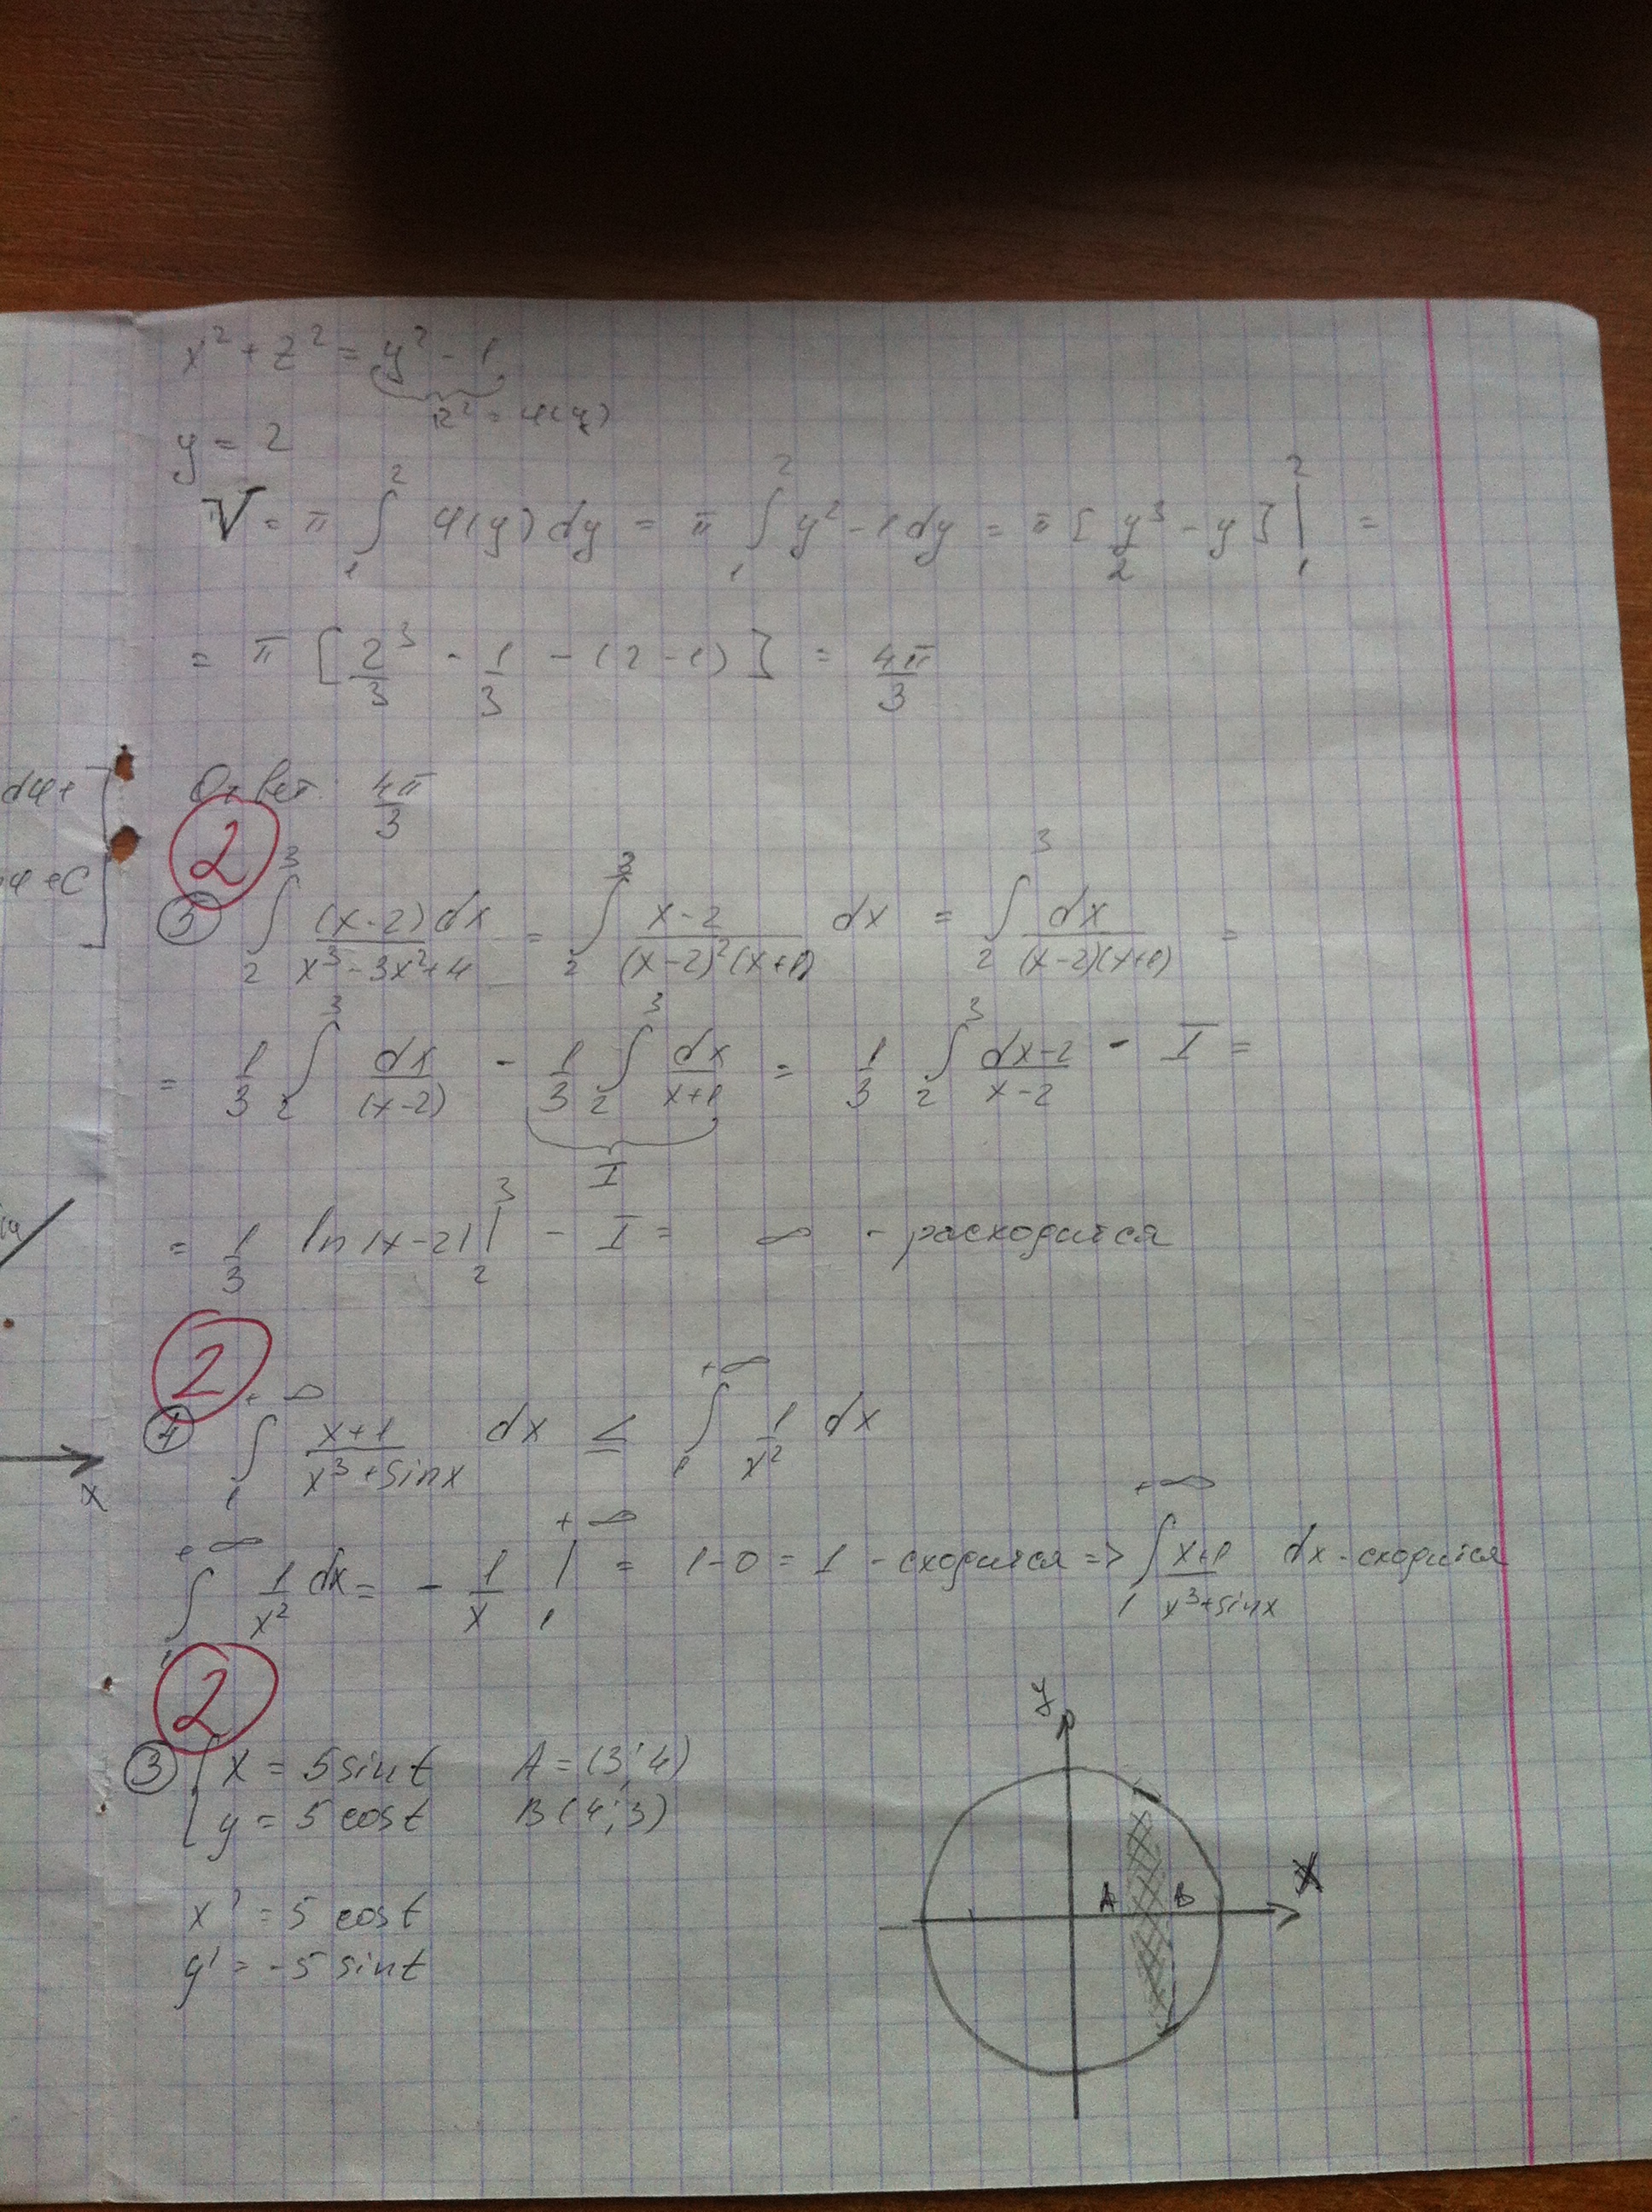 x² + z² = y² - 1
R² = φ(y)
y = 2
V = π ∫₁² φ(y) dy = π ∫₁² y² - 1 dy = π [y³/2 - y] |₁² =
= π [2³/3 - 1/3 - (2 - 1)] = 4π/3
dφ +
Ответ: 4π/3
φ + C
2
5 ∫₂³ (x-2)dx/(x³-3x²+4) = ∫₂³ (x-2)/((x-2)²(x+1)) dx = ∫₂³ dx/((x-2)(x+1)) =
= 1/3 ∫₂³ dx/(x-2) - 1/3 ∫₂³ dx/(x+1) = 1/3 ∫₂³ dx-2/(x-2) - I =
I
= 1/3 ln|x-2| |₂³ - I = ∞ - расходится
2
4 ∫₁^{+∞} (x+1)/(x³+sinx) dx ≤ ∫₁^{+∞} 1/x² dx
x
∫₁^{+∞} 1/x² dx = - 1/x |₁^{+∞} = 1-0 = 1 - сходится => ∫₁^{+∞} (x+1)/(x³+sinx) dx - сходится
2
3 { x = 5 sint A = (3; 4)
y = 5 cost B (4; 3)
x' = 5 cost
y' = -5 sint
y
A B x